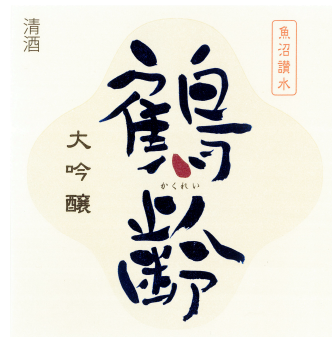 清酒
魚沼讃水
鶴齢
かくれい
大吟醸